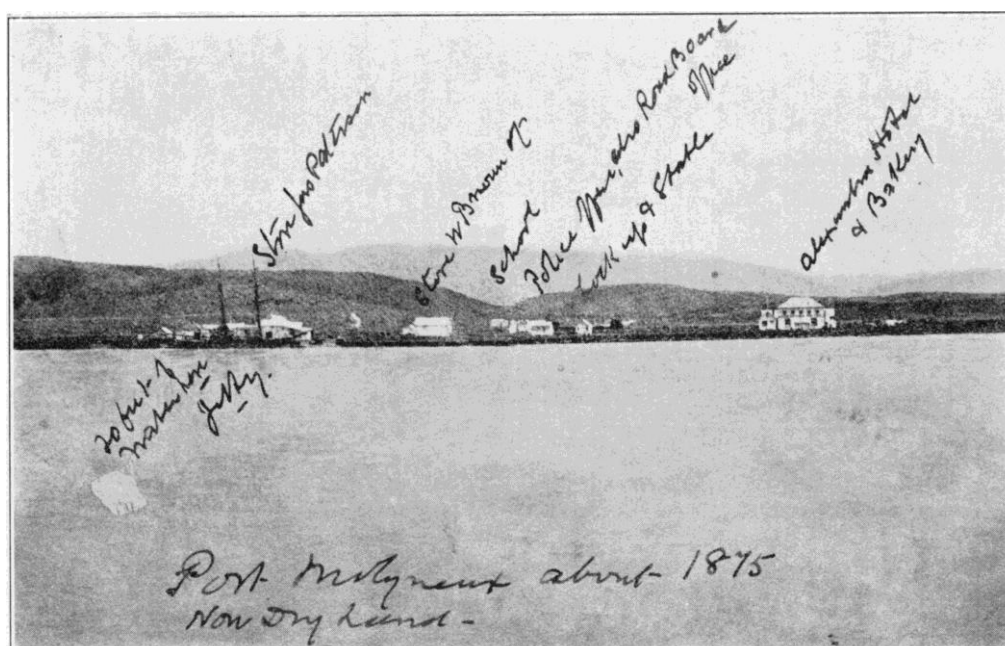 Store Jas Paterson
Store W Brown of
School
Police Office, also Road Board
Office
Lock up & Stable
Alexandra Hotel
& Bakery
20 feet of
Water here
Jetty.
Port Molyneux about 1875
Now Dry Land -